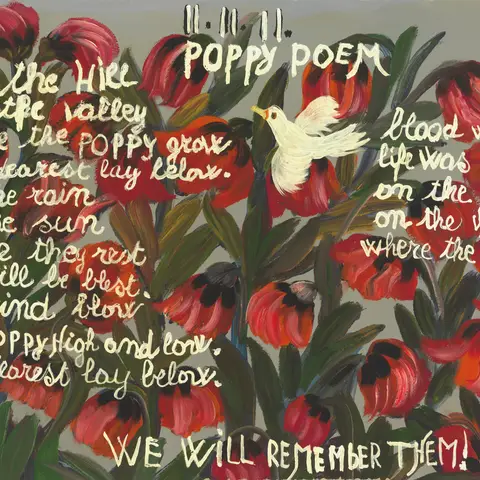 11.11.11.
POPPY POEM
the Hill
the valley
the POPPY grow
dearest lay below.
rain
sun
they rest
will be blest.
wind blow
POPPY High and low.
dearest lay below.
blood
life was
on the
on the
where the
WE WILL REMEMBER THEM!